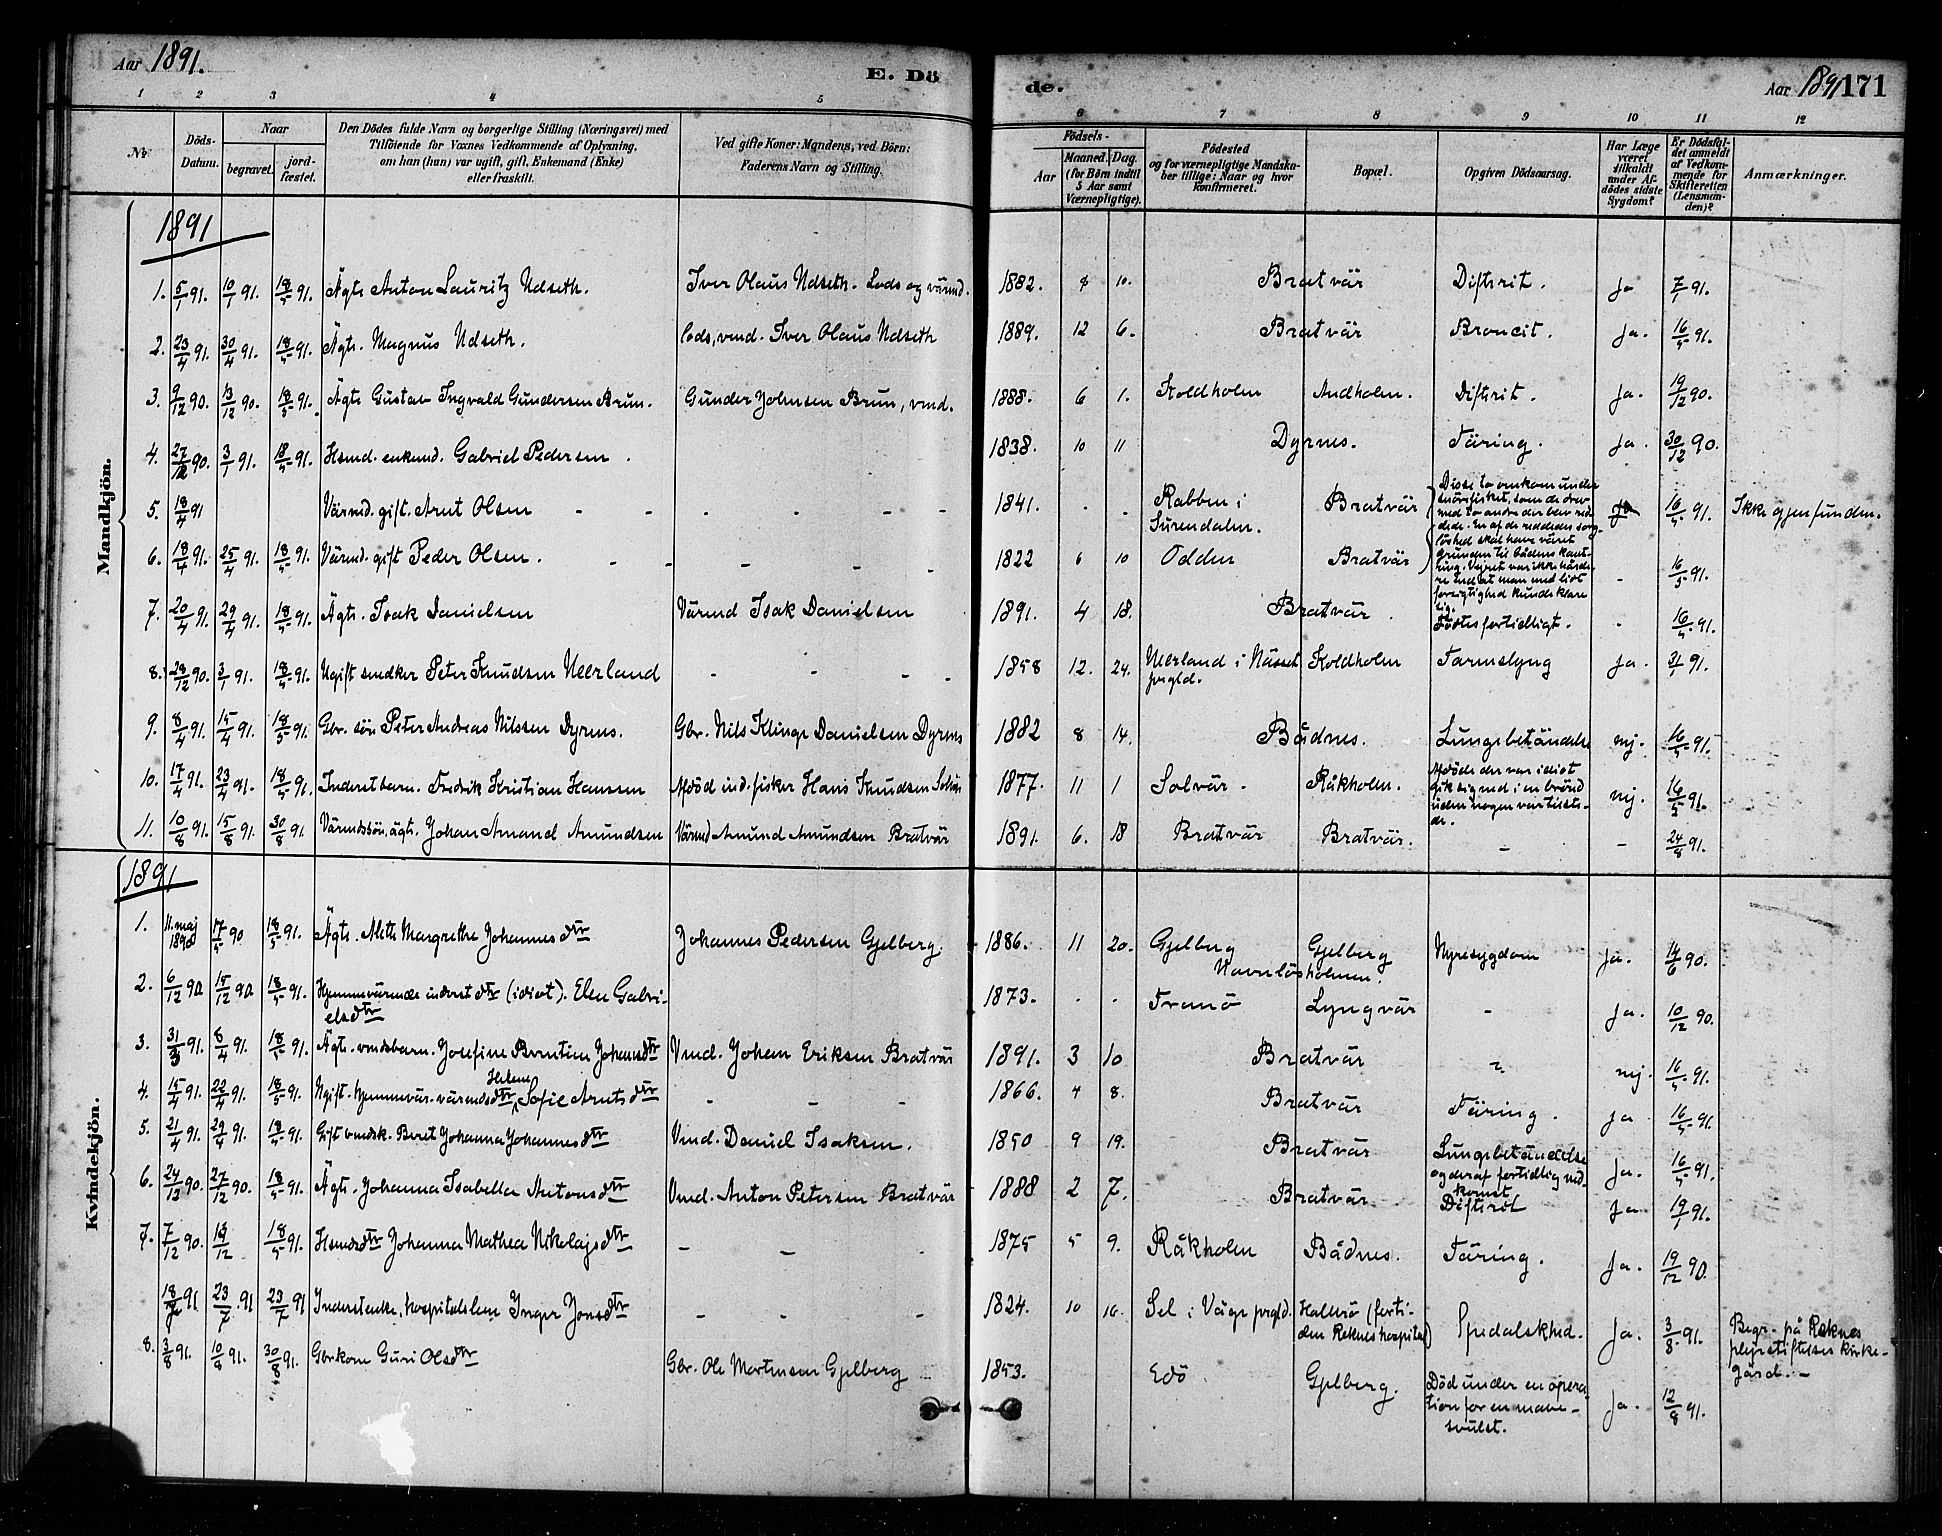 Aar 1891.
E. Dö
de.
Aar 1891 171
1 2 3 4 5
6 7 8 9 10 11 12
Nr.
Döds-Datum.
Naar
begravet.
jord-fæstet.
Den Dödes fulde Navn og borgerlige Stilling (Næringsvei) med
Tilföiende for Voxnes Vedkommende af Oplysning,
om han (hun) var ugift, gift, Enkemand (Enke)
eller fraskilt.
Ved gifte Koner: Mandens, ved Börn:
Faderens Navn og Stilling.
Födsels-
Aar
Maaned. Dag.
(for Börn indtil
5 Aar samt
Værnepligtige).
Födested
og for værnepligtige Mandska-
ber tillige: Naar og hvor
Konfirmeret.
Bopæl.
Opgiven Dödsaarsag.
Har Læge
været
tilkaldt
under Af-
dödes sidste
Sygdom?
Er Dödsfal-
det anmeldt
af Vedkom-
mende for
Skifteretten
(Lensman-
den)?
Anmærkninger.
Mandkjön.
1891
1. 5/1 91. 10/1 91. 18/5 91. Ägte Anton Lauritz Udseth. Iver Olaus Udseth. Lods og värmd. 1882. 4 10. Bratvär Difterit. Ja 7/1 91.
2. 23/4 91. 30/4 91. 18/5 91. Ägte. Magnus Udseth. lods, vmd. Iver Olaus Udseth 1889. 12 6. Bratvär Broncit. Ja. 16/5 91.
3. 9/12 90. 13/12 90. 18/5 91. Ägte Gustav Ingvald Gundersen Brun. Gunder Johnsen Brun, vmd. 1888. 6 1. Koldholm Andholm. Difterit. Ja. 19/12 90.
4. 27/12 90. 3/1 91. 18/5 91. Hsmd. enkemd. Gabriel Pedersen. 1838. 10 11 Dyrnes. Täring. Ja. 30/12 90.
5. 18/4 91 Värmd. gift. Arnt Olsen - - - - - - 1841. - - Rabben i Surendalen. Bratvär
Disse to omkom under
snörefisket, som de drev
med to andre der blev red-
dede. En af de reddedes sorg-
löshed skal have väret
grunden til bådens kant-
ring. Vejret var ikke hårde-
re end at man med lidt
forsigtighed kunde klare
sig.
16/5 91. Ikke gjenfunden.
6. 18/4 91. 25/4 91. 18/5 91. Värmd. gift Peder Olsen. - - - - - 1822 6 10 Odden Bratvär - 16/5 91.
7. 20/4 91. 29/4 91. 18/5 91. Ägte. Isak Danielsen Värmd Isak Danielsen 1891. 4 18. Bratvär. Födtes fortidligt. - 16/5 91.
8. 28/12 90. 3/1 91. 18/5 91. Ugift snedker Peter Knudsen Meerland - - - - 1858 12. 24. Meerland i Nässet prgld. Koldholm Tarmslyng Ja. 3/1 91.
9. 8/4 91. 15/4 91. 18/5 91. Gbr. sön Peter Andreas Nilssen Dyrnes. Gbr. Nils Klinge Danielsen Dyrnes 1882 8 14. Bådnes. Lungebetändelse nej. 16/5 91.
10. 17/4 91. 23/4 91. 18/5 91. Inderst barn. Fredrik Kristian Hanssen Afdöd ind. fisker Hans Knudsen Solvär 1877. 11 1 Solvär. Råkholm.
Afdöde der var idiot
gik sig ned i en brönd
uden nogen var tilste-
de.
nej. 16/5 91.
11. 10/8 91. 15/8 91. 30/8 91. Värmdssön, ägte. Johan Amand Amundsen Värmd Amund Amundsen Bratvär 1891. 6. 18 Bratvär Bratvär. - - 24/8 91.
Kvindekjön.
1891
1. 11. maj 1890 17/5 90 18/5 91. Ägte. Alette Margrethe Johannesdtr Johannes Pedersen Gjelberg. 1886. 11 20. Gjelberg Gjelberg Navnlösholmen. Nyresygdom Ja. 14/6 90.
2. 6/12 90 15/12 90 18/5 91. Hjemmevärende inderst dtr (idiot). Elen Gabri-
elsdtr 1873. - - Tranö Lyngvär - Ja. 10/12 90.
3. 31/3 91. 8/4 91. 18/5 91. Ägte. vmdsbarn. Josefine Berntine Johansdtr Vmd. Johan Eriksen Bratvär 1891. 3 10 Bratvär nej. 16/5 91.
4. 15/4 91. 22/4 91. 18/5 91. Ugift. hjemmevär. värmdsdtr Helene Sofie Arntsdtr - - - 1866. 4 8. Bratvär Täring. Ja 16/5 91.
5. 21/4 91. 29/4 91. 18/5 91. Gift vmdsk. Beret Johanna Johannesdtr Vmd. Daniel Isaksen. 1850 9 19. Bratvär
Lungebetändelse
og deraf fortidlig ned-
komst.
Ja. 16/5 91.
6. 24/12 90. 27/12 90. 18/5 91. Ägte. Johanna Isabella Antonsdtr Vmd. Anton Petersen Bratvär 1888 2 7. Bratvär Difterit Ja 19/1 91.
7. 7/12 90. 13/12 18/5 91. Hsmdsdtr Johanna Mathea Nikolajsdtr - - - 1875 5 9. Råkholm Bådnes. Täring. Ja. 19/12 90.
18/7 91. 23/7 91 23/7 91 Inderstenke, hospitalslem Inger Jonsdtr - - - 1824. 10 16. Sel i Våge prgld. Halsö (forti-
den Reknes hospital) Spedalskhed. Ja. 3/8 91.
Begr. på Reknes
plejestiftelses kirke-
gård. -
8. 3/8 91. 10/8 91. 30/8 91. Gbrkone Guri Olsdtr Gbr. Ole Martinsen Gjelberg 1853. Edö Gjelberg.
Död under en opera-
tion for en mave-
svulst.
Ja. 12/8 91.